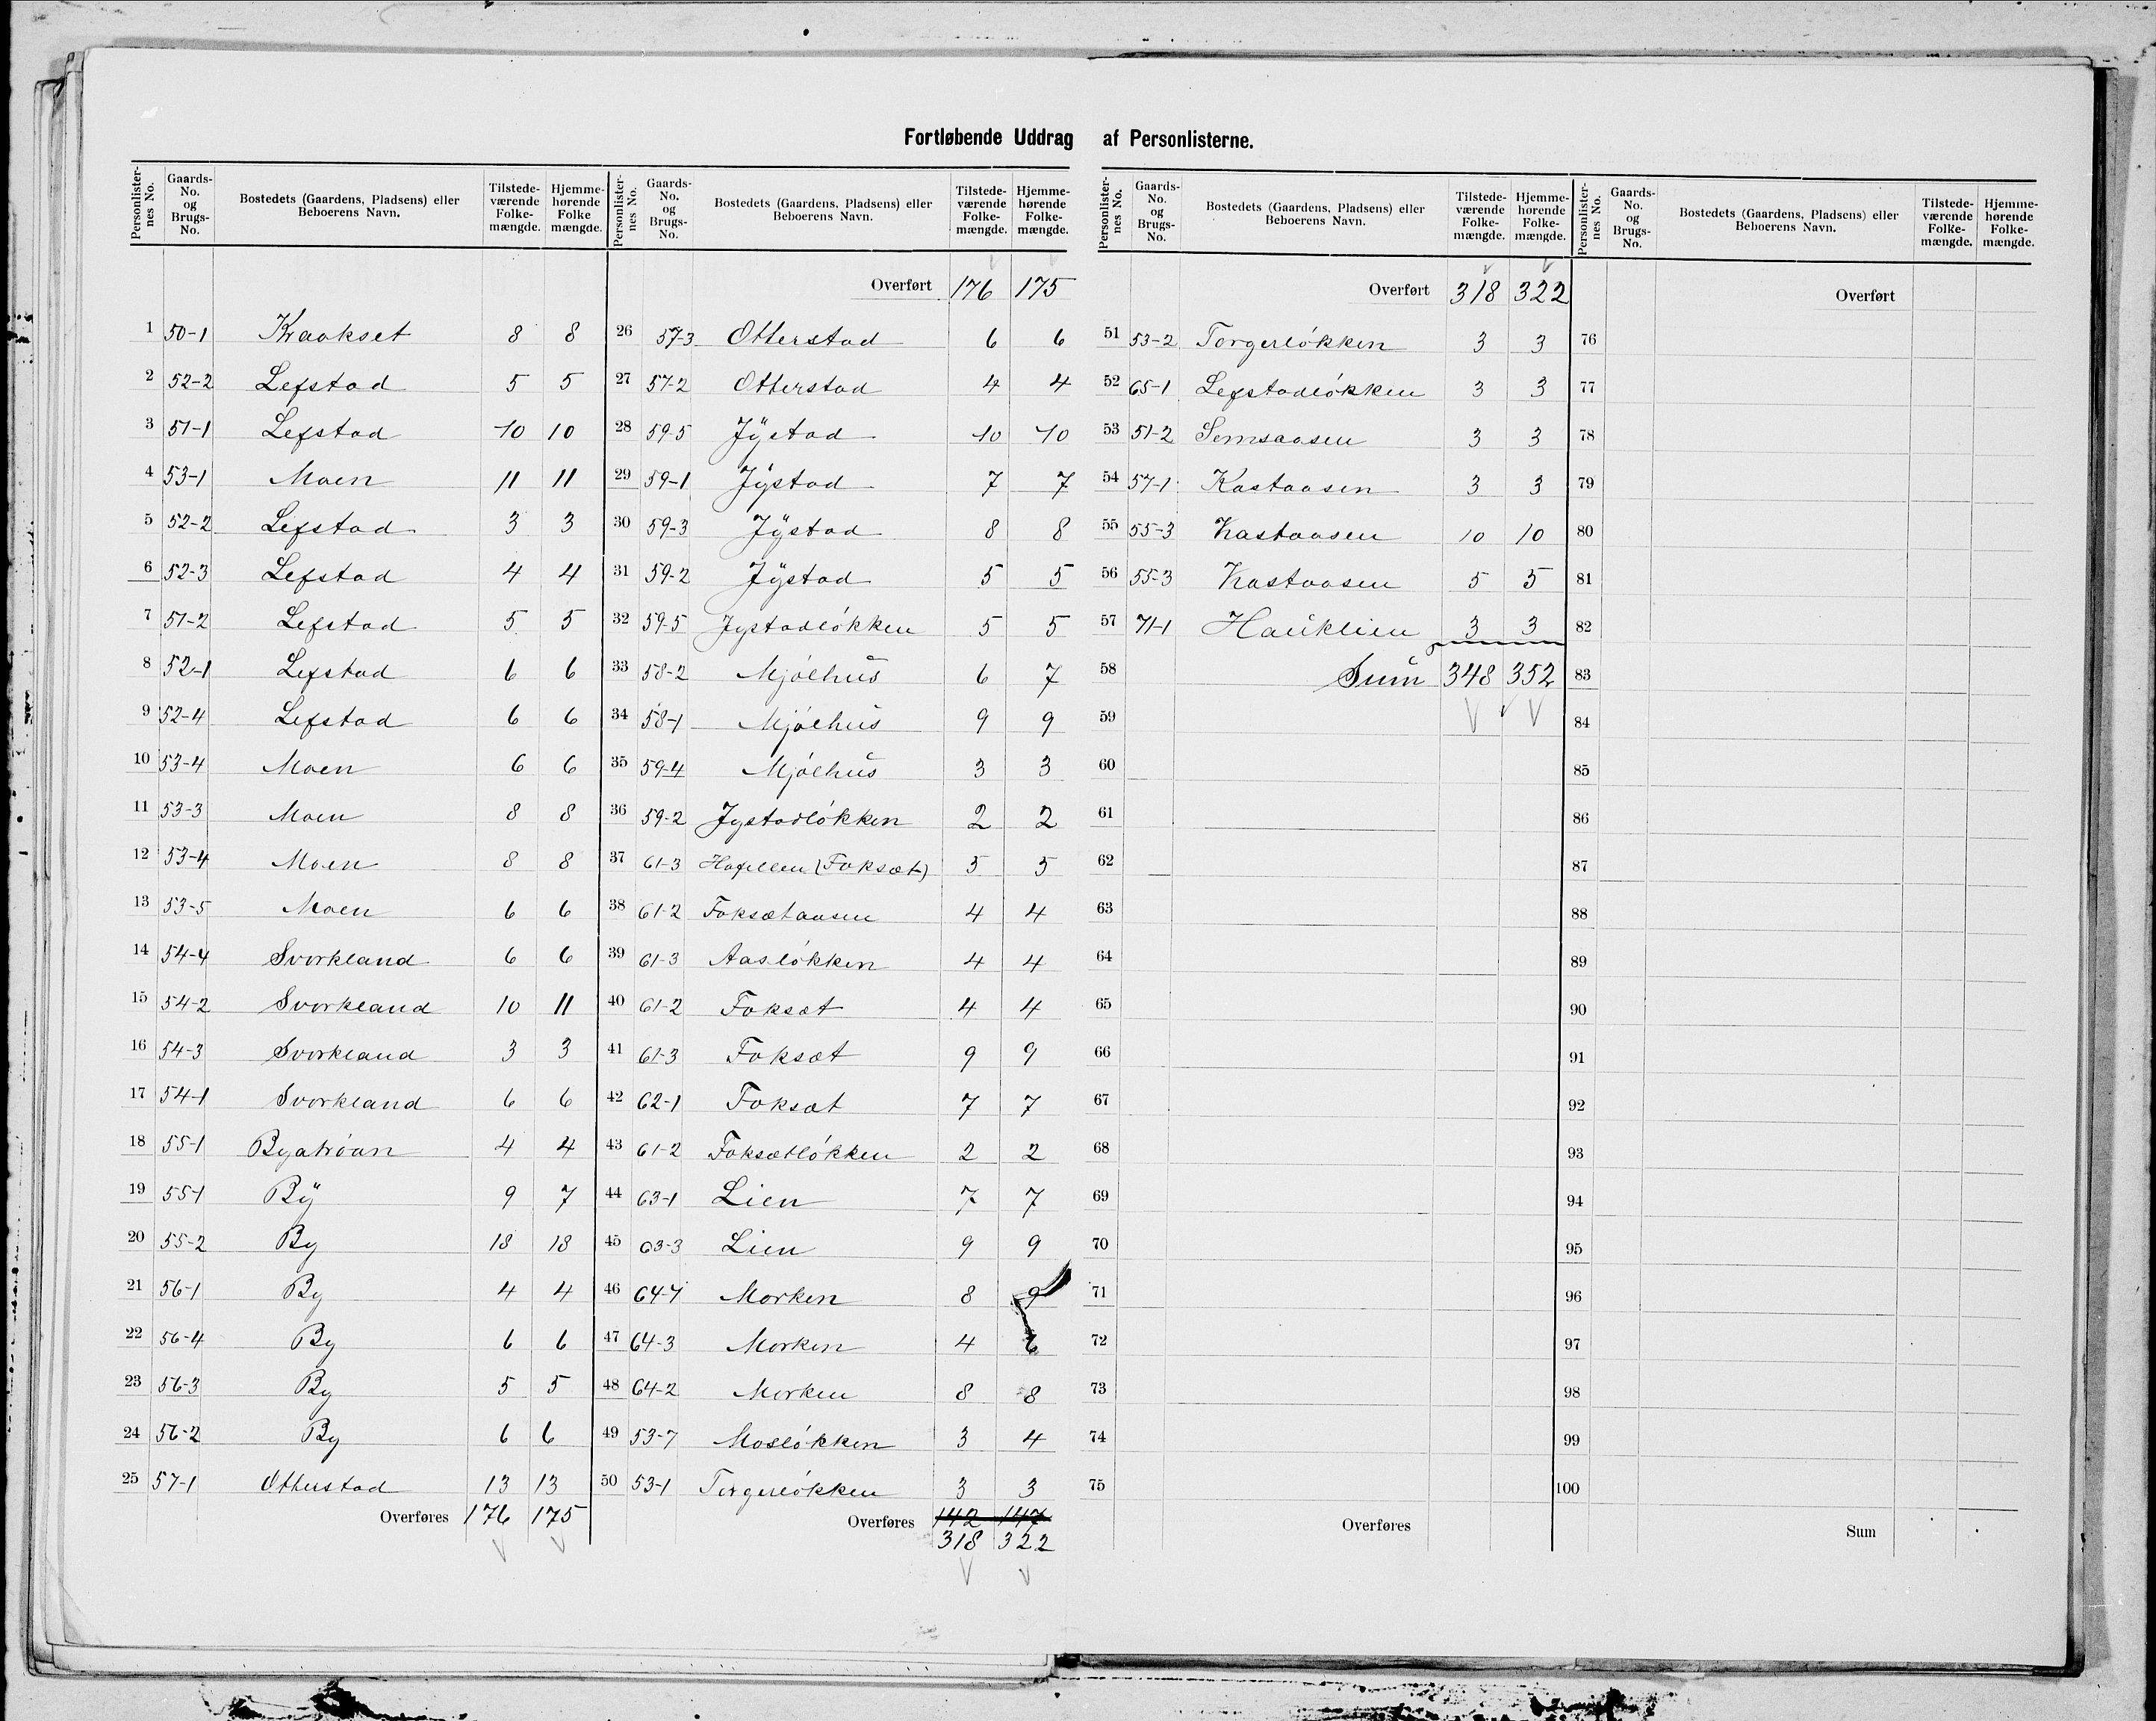 Fortløbende Uddrag af Personlisterne.
Personlister-nes No. | Gaards-No. og Brugs-No. | Bostedets (Gaardens, Pladsens) eller Beboerens Navn. | Tilstede-værende Folke-mængde. | Hjemme-hørende Folke mængde.
1 50-1 Kraakset 8 8
2 52-2 Lefstad 5 5
3 51-1 Lefstad 10 10
4 53-1 Moen 11 11
5 52-2 Lefstad 3 3
6 52-3 Lefstad 4 4
7 51-2 Lefstad 5 5
8 52-1 Lefstad 6 6
9 52-4 Lefstad 6 6
10 53-4 Moen 6 6
11 53-3 Moen 8 8
12 53-4 Moen 8 8
13 53-5 Moen 6 6
14 54-4 Svorkland 6 6
15 54-2 Svorkland 10 11
16 54-3 Svorkland 3 3
17 54-1 Svorkland 6 6
18 55-1 Byatróan 4 4
19 55-1 Bÿ 9 7
20 55-2 By 18 18
21 56-1 By 4 4
22 56-4 By 6 6
23 56-3 By 5 5
24 56-2 By 6 6
25 57-1 Otterstad 13 13
Overføres 176 175
Personlister-nes No. | Gaards-No. og Brugs-No. | Bostedets (Gaardens, Pladsens) eller Beboerens Navn. | Tilstede-værende Folke-mængde. | Hjemme-hørende Folke-mængde.
Overført 176 175
26 57-3 Otterstad 6 6
27 57-2 Otterstad 4 4
28 59-5 Jÿstad 10 10
29 59-1 Jÿstad 7 7
30 59-3 Jÿstad 8 8
31 59-2 Jÿstad 5 5
32 59-5 Jystadlókken 5 5
33 58-2 Mjólhus 6 7
34 58-1 Mjólhus 9 9
35 59-4 Mjólhus 3 3
36 59-2 Jystadlókken 2 2
37 61-3 (Foksæt) 5 5
38 61-2 Foksætaasen 4 4
39 61-3 Aaslókken 4 4
40 61-2 Foksæt 4 4
41 61-3 Foksæt 9 9
42 62-1 Foksæt 7 7
43 61-2 Foksætlókken 2 2
44 63-1 Lien 7 7
45 63-3 Lien 9 9
46 Morken 8 9
47 64-3 Morken 4 6
48 64-2 Morken 8 8
49 53-7 Moslókken 3 4
50 53-1 Torgerlókken 3 3
Overføres 142 147
318 322
Personlister-nes No. | Gaards-No. og Brugs-No. | Bostedets (Gaardens, Pladsens) eller Beboerens Navn. | Tilstede-værende Folke-mængde. | Hjemme-hørende Folke-mængde.
Overført 318 322
51 53-2 Torgerlókken 3 3
52 65-1 Lefstadlókken 3 3
53 51-2 Semsaasen 3 3
54 57-1 Kastaasen 3 3
55 55-3 Kastaasen 10 10
56 55-3 Kastaasen 5 5
57 71-1 Hauklien 3 3
58 Sum 348 352
59
60
61
62
63
64
65
66
67
68
69
70
71
72
73
74
75
Overføres
Personlister-nes No. | Gaards-No. og Brugs-No. | Bostedets (Gaardens, Pladsens) eller Beboerens Navn. | Tilstede-værende Folke-mængde. | Hjemme-hørende Folke-mængde.
Overført
76
77
78
79
80
81
82
83
84
85
86
87
88
89
90
91
92
93
94
95
96
97
98
99
100
Sum